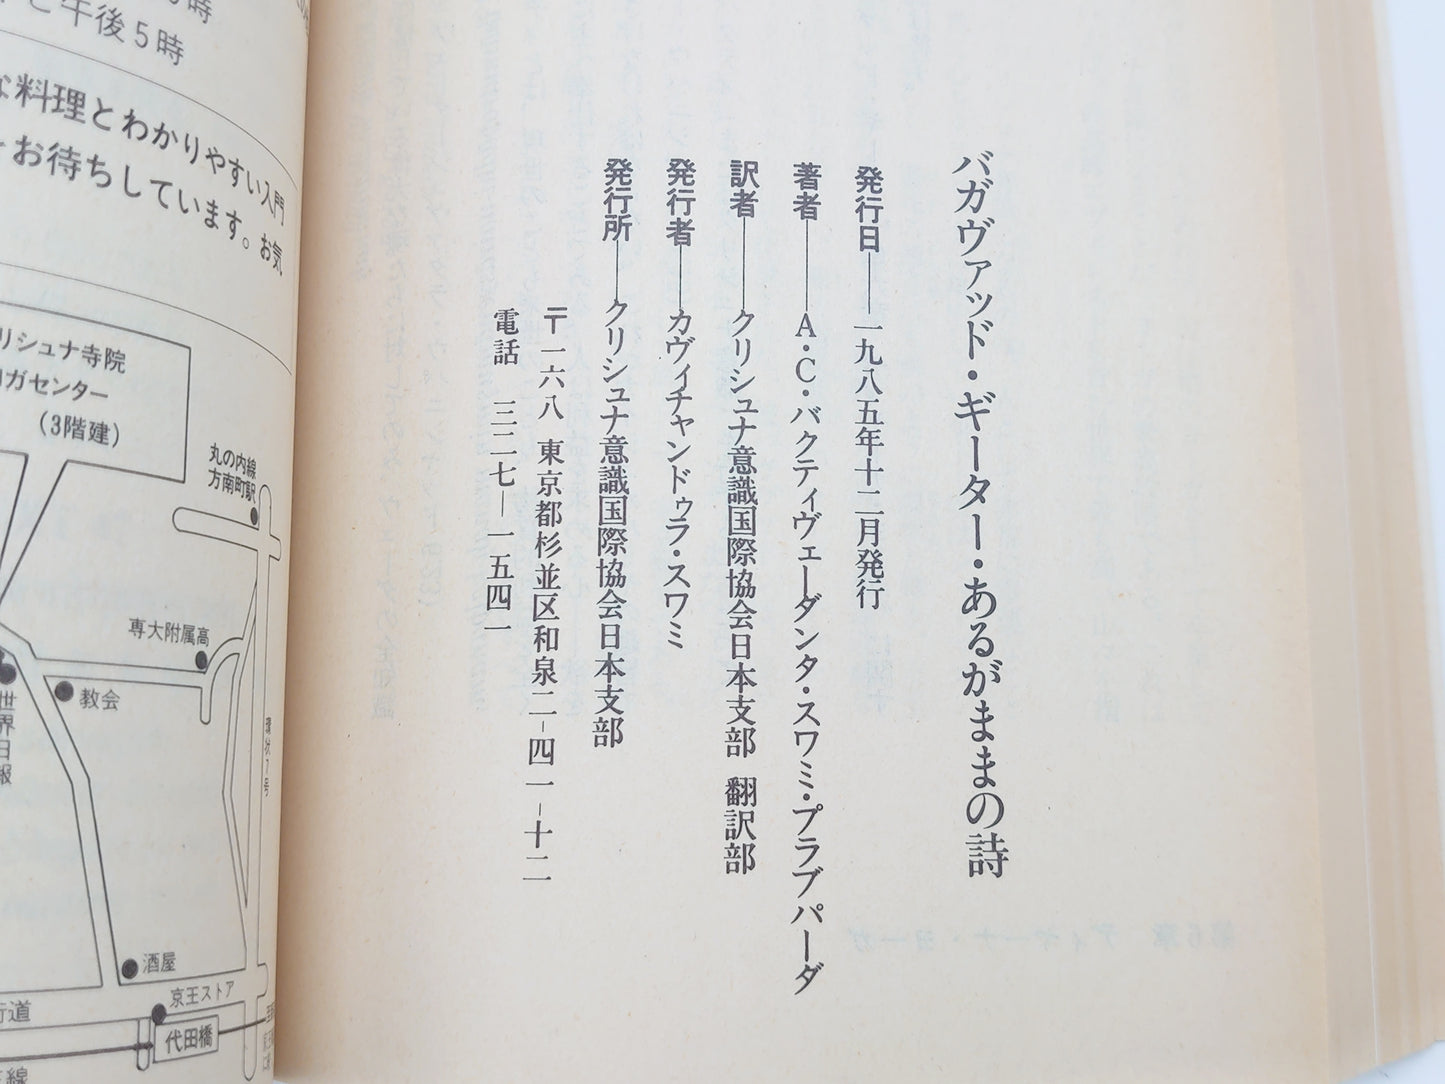 バガヴァッド・ギーター・あるがままの詩
発行日——一九八五年十二月発行
著者——A・C・バクティヴェーダンタ・スワミ・プラブパーダ
訳者——クリシュナ意識国際協会日本支部 翻訳部
発行者——カヴィチャンドゥラ・スワミ
発行所——クリシュナ意識国際協会日本支部
〒一六八 東京都杉並区和泉二-四一-十二
電話 三二七-一五四一
時
と午後5時
な料理とわかりやすい入門
お待ちしています。お気
リシュナ寺院
ヨガセンター
(3階建)
丸の内線
方南町駅
専大附属高
教会
世界日報
環状7号
酒屋
京王ストア
街道
代田橋
線